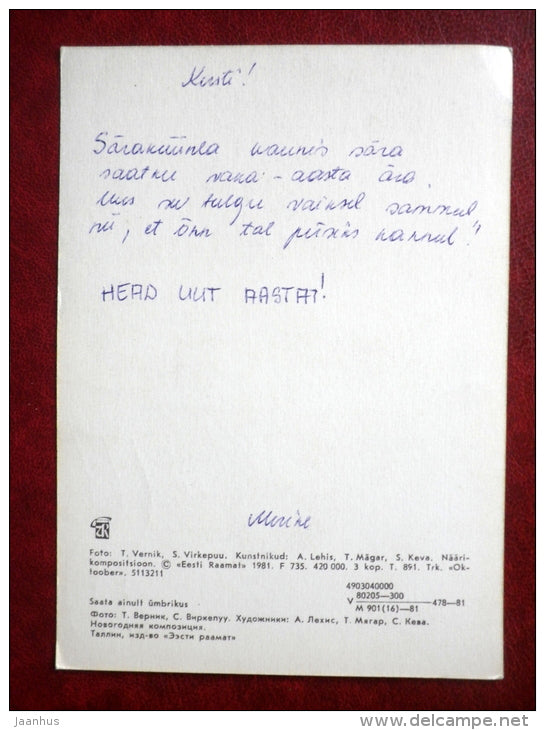 Kersti!
Säraküünla kaunis sära
saatku vana-aasta ära
Uus see tulgu vaiksel sammul
nii, et õnn tal püsiks kannul!
HEAD UUT AASTAT!
Merike
Foto: T. Vernik, S. Virkepuu. Kunstnikud: A. Lehis, T. Mägar, S. Keva. Nääri-
kompositsioon. © «Eesti Raamat» 1981. F 735. 420 000. 3 kop. T. 891. Trk. «Ok-
toober». 5113211
4903040000
V 80205—300
M 901(16)—81 478—81
Saata ainult ümbrikus
Фото: Т. Верник, С. Виркепуу. Художники: А. Лехис, Т. Мягар, С. Кева.
Новогодняя композиция.
Таллин, изд-во «Ээсти раамат»
Jaanhus
www.delcampe.net